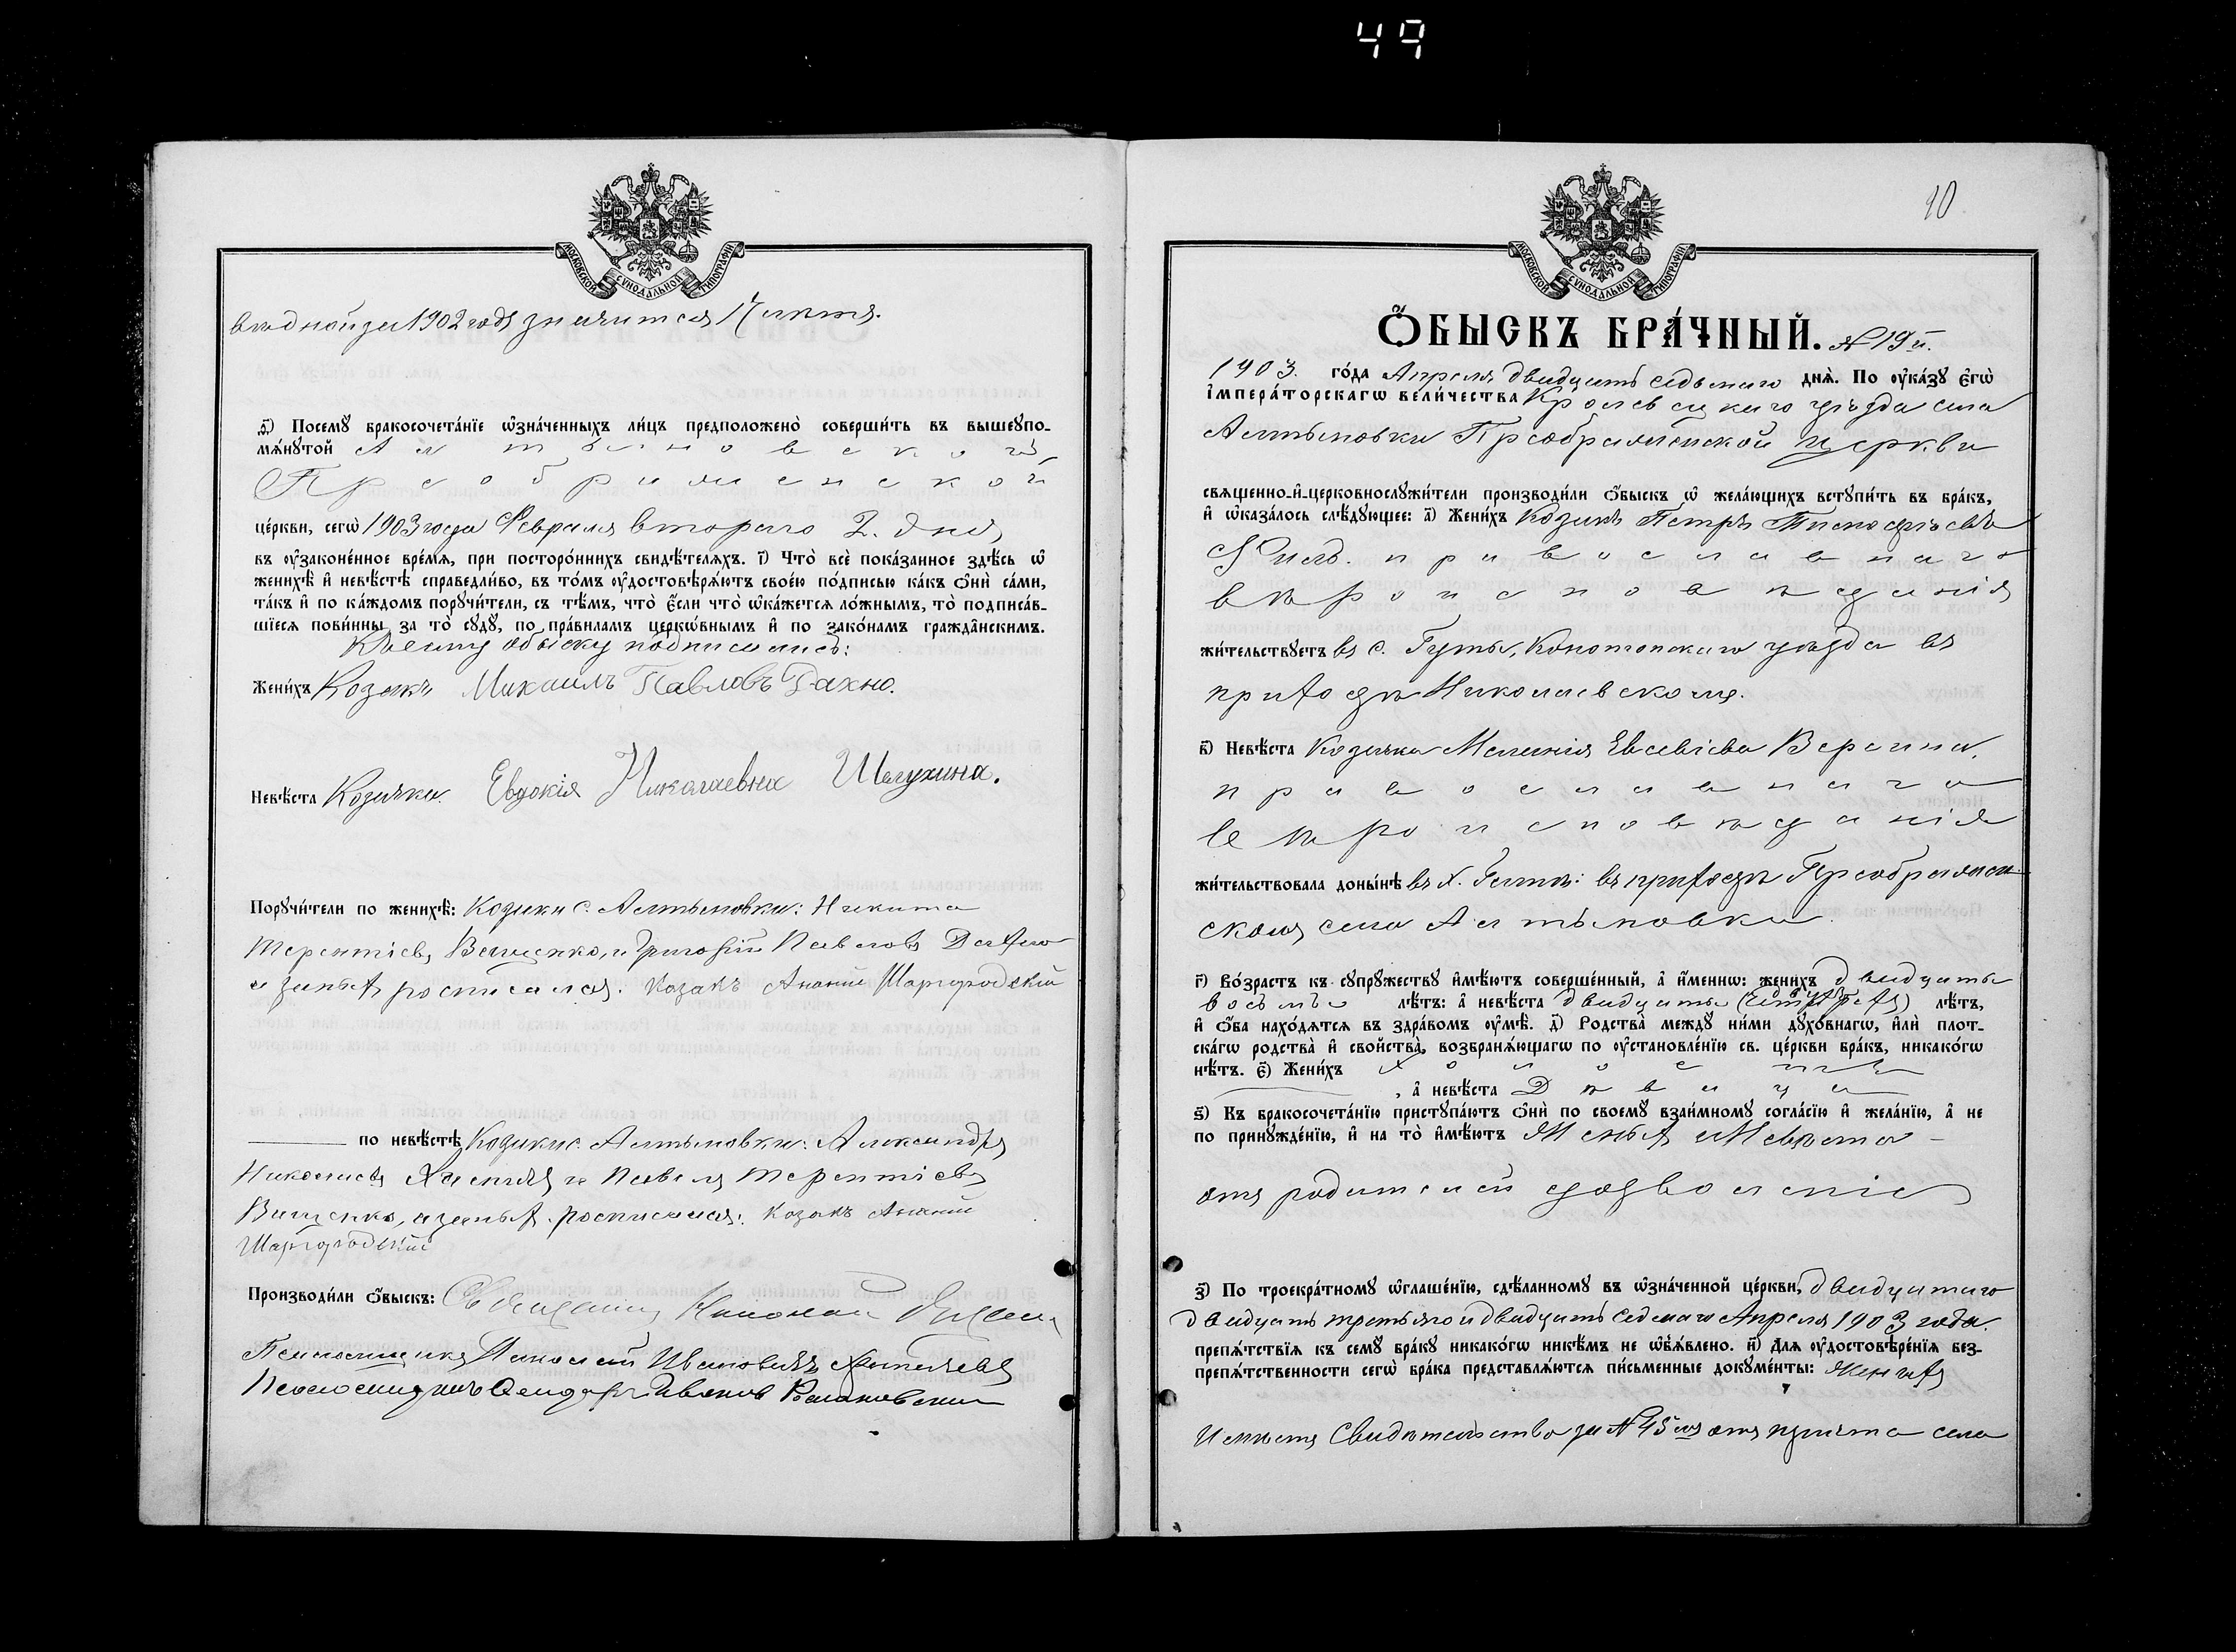 49
МОСКОВСКОЙ СУНОДАЛЬНОЙ ТИПОГРАФІИ
за 1902 годъ значится
д҃) Посемꙋ̀ бракосочета́нїе ѡ҆зна́ченныхъ ли́цъ предположено̀ соверши́ть въ вышеꙋпо-
мѧ́нꙋтой Алтыновской
Преображенской
це́ркви, сегѡ̀ 1903 года Февраля второго 2. дня
въ ᲂу҆законе́нное вре́мѧ, при посторо́ннихъ свидѣ́телѧхъ. і҃) Что̀ всѐ пока́занное здѣ́сь ѡ҆
женихѣ̀ и҆ невѣ́стѣ справедли́во, въ то́мъ ᲂу҆достовѣрѧ́ютъ свое́ю по́дписью ка́къ ѻ҆нѝ са́ми,
та́къ и҆ по ка́ждомъ порꙋчи́тели, съ тѣ́мъ, что̀ є҆́сли что̀ ѡ҆ка́жетсѧ ло́жнымъ, то̀ подписа́в-
шїесѧ пови́нны за то̀ сꙋдꙋ̀, по пра́виламъ церко́внымъ и҆ по зако́намъ гражда̑нскимъ.
К сему обыску подписались:
Жени́хъ Козакъ Михаилъ Павловъ Дахно.
Невѣ́ста Козачка Евдокія Николаевна Шалухина.
Порꙋчи́тели по женихѣ̀: Козаки с. Алтыновки: Никита
Терентіевъ Ващенко, и Григорій Павловъ Дахно
а за них росписался. Козакъ Ананій Шаргородскій
по невѣ́стѣ Козаки с. Алтыновки: Александръ
Николаевъ и Павелъ Терентіевъ
Ващенко, а за них росписался: Козакъ Ананій
Шаргородскій
Производи́ли ѻ҆́быскъ: Священникъ Николай
Псаломщикъ Николай Ивановичъ
Псаломщикъ Ивановъ Романовскій
10
МОСКОВСКОЙ СУНОДАЛЬНОЙ ТИПОГРАФІИ
Ѻ҆́БЫСКЪ БРА́ЧНЫЙ. № 19й.
1903. го́да Апреля двадцать седьмаго днѧ̀. По ᲂу҆ка́зꙋ є҆гѡ̀
і҆мпера́торскагѡ вели́чества Кролевецкаго уѣзда села
Алтыновки Преображенской церкви
свѧщенно-и҆-церковнослꙋжи́тели производи́ли ѻ҆́быскъ ѡ҆ жела́ющихъ встꙋпи́ть въ бра́къ,
и҆ ѡ҆каза́лось слѣ́дꙋющее: а҃) Жени́хъ Козакъ Петръ Тимофѣевъ
православнаго
вѣроисповѣданія
жи́тельствꙋетъ въ с. Гуты, Конотопскаго уѣзда въ
приходѣ Николаевскомъ.
в҃) Невѣ́ста Козачка Меланія Евсевіева
православнаго
вѣроисповѣданія
жи́тельствовала доны́нѣ въ х. въ приходѣ Преображен-
скомъ села Алтыновки.
г҃) Во́зрастъ къ сꙋпрꙋ́жествꙋ и҆мѣ́ютъ соверше́нный, а҆ и҆́менно: жени́хъ двадцать
восемь лѣ́тъ: а҆ невѣ́ста двадцать лѣ́тъ,
и҆ ѻ҆́ба нахо́дѧтсѧ въ здра́вомъ ᲂу҆мѣ̀. д҃) Родства̀ междꙋ̀ ни́ми дꙋхо́внагѡ, и҆лѝ плот-
ска́гѡ родства̀ и҆ сво́йства̀, возбранѧ́ющагѡ по ᲂу҆становле́нїю св. це́ркви бра́къ, никако́гѡ
нѣ́тъ. є҃) Жени́хъ холостъ
, а҆ невѣ́ста Дѣвица
ѕ҃) Къ бракосочета́нїю пристꙋпа́ютъ ѻ҆нѝ по своемꙋ̀ взаи́мномꙋ согла́сїю и҆ жела́нїю, а҆ не
по принꙋжде́нїю, и҆ на то̀ и҆мѣ́ютъ Жених и Невѣста
отъ родителей дозволеніе
з҃) По троекра́тномꙋ ѡ҆глаше́нїю, сдѣ́ланномꙋ въ ѡ҆зна́ченной це́ркви, двадцатаго
двадцать третьяго и двадцать седмаго Апреля 1903 года.
препѧ́тствїѧ къ семꙋ̀ бра́кꙋ никако́гѡ никѣ́мъ не ѡ҆б̾ѧ́влено. и҃) Длѧ ᲂу҆достовѣ́ренїѧ без-
препѧ́тственности сегѡ̀ бра́ка представлѧ́ютсѧ пи́сьменные докꙋме́нты: Жених
Имѣетъ Свидѣтельство за № 45мъ отъ причта села